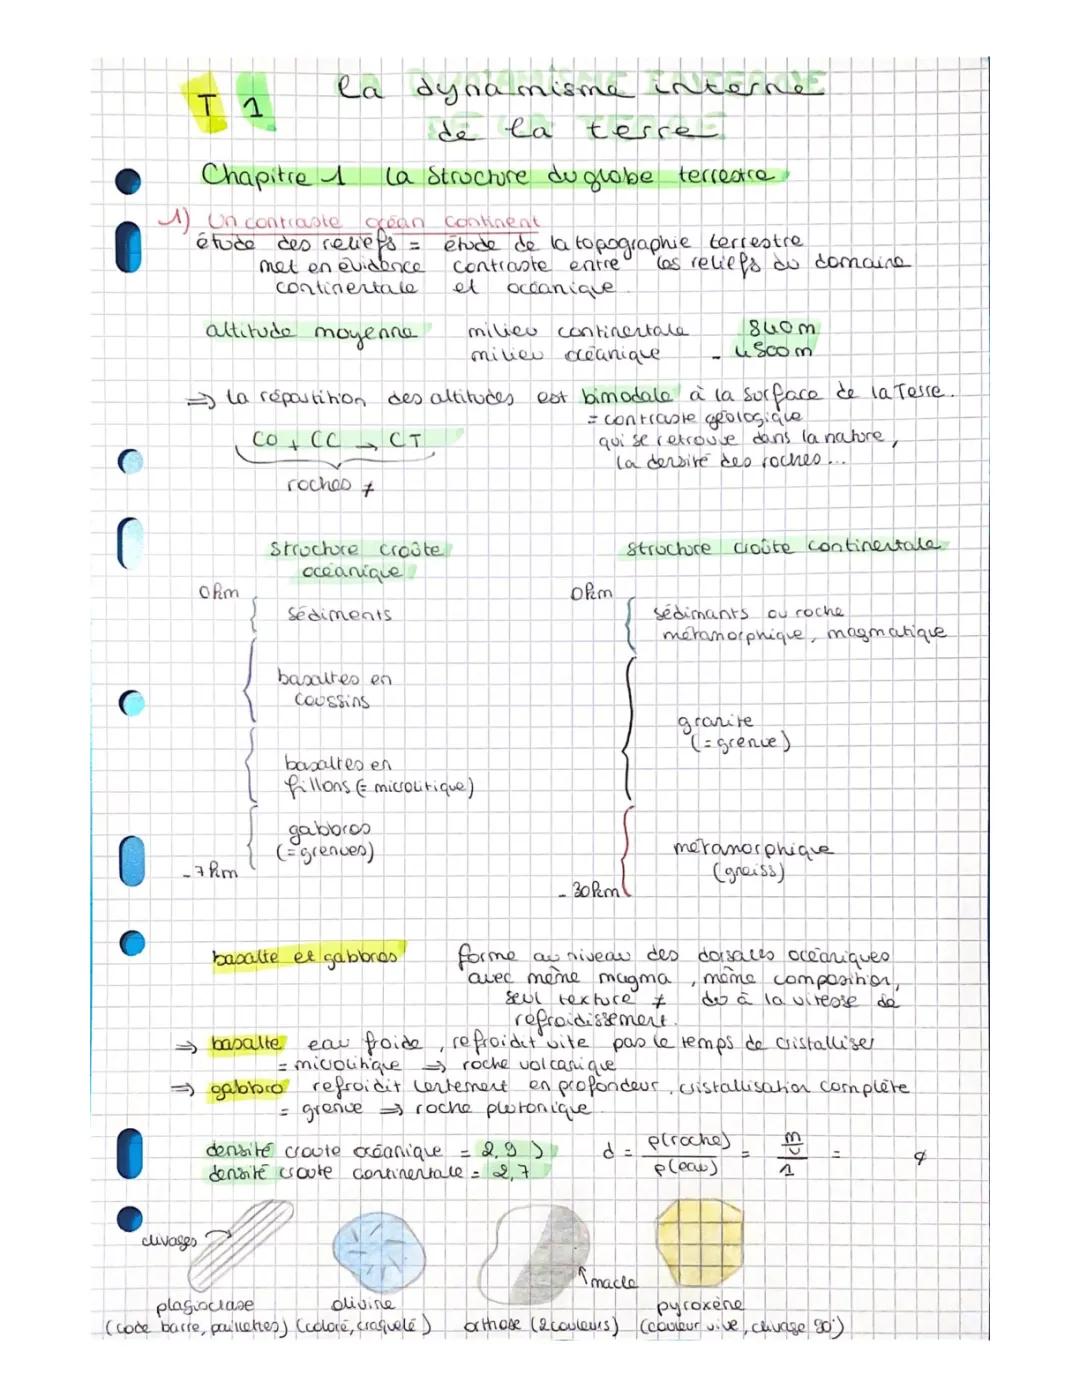 T 1
la dynamisme interne
de la terre
Chapitre 1 la Structure du globe terrestre
1) Un contraste océan continent
étude des reliefs = étude de la topographie terrestre
met en évidence contraste entre les reliefs du domaine
continentale et océanique
altitude moyenne milieu continentale 840 m
milieu océanique - 4500 m
⇒ la répartition des altitudes est bimodale à la surface de la Terre.
= contraste géologique
qui se retrouve dans la nature,
la densité des roches...
CO + CC → CT
roches ≠
structure croûte océanique
structure croûte continentale
0km
sédiments
basaltes en
coussins
basaltes en
fillons (= microlitique)
gabbros
(= grenues)
- 7 km
0km
sédimants ou roche
métamorphique, magmatique
granite
(= grenue)
métamorphique
(gneiss)
- 30 km
basalte et gabbros forme au niveau des dorsales océaniques
avec même magma, même composition,
seul texture ≠ du à la vitesse de
refroidissement.
⇒ basalte eau froide, refroidit vite pas le temps de cristalliser
= microlitique ⇒ roche volcanique
⇒ gabbro refroidit lentement en profondeur, cristallisation complète
= grenue ⇒ roche plutonique
densité croute océanique = 2,9 ) d = ρ(roche) / ρ(eau) = m/v / 1 =
densité croute continentale = 2,7
clivages
macle
plagioclase olivine pyroxène
(code barre, paillettes) (coloré, craquelé) orthose (2 couleurs) (couleur vive, clivage 90°)